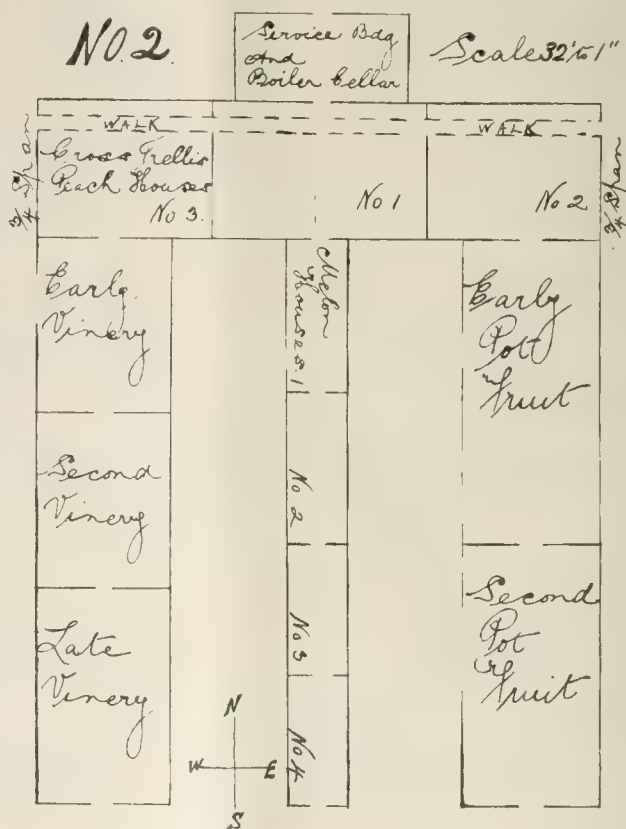 NO. 2.
Service Bdg
and
Boiler Cellar
Scale 32' to 1"
WALK
WALK
3/4 Span
Cross Trellis
Peach Houses
No 3.
No 1
No 2
3/4 Span
Early
Vinery
Melon
Houses. 1
Early
Pot
Fruit
Second
Vinery
No 2
Late
Vinery
No 3
Second
Pot
Fruit
No 4
N
W
E
S